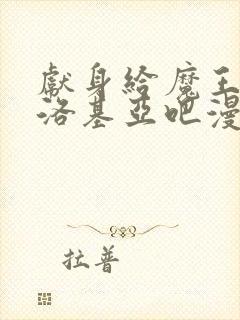 獻身給魔王
洛基亞吧漫
拉普